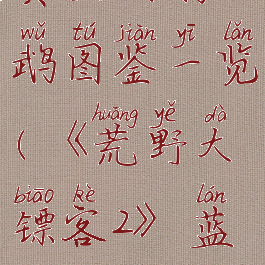 wǔ tú jiàn yī lǎn
鹉图鉴一览
huāng yě dà
(《荒野大
biāo kè lán
镖客2》 蓝